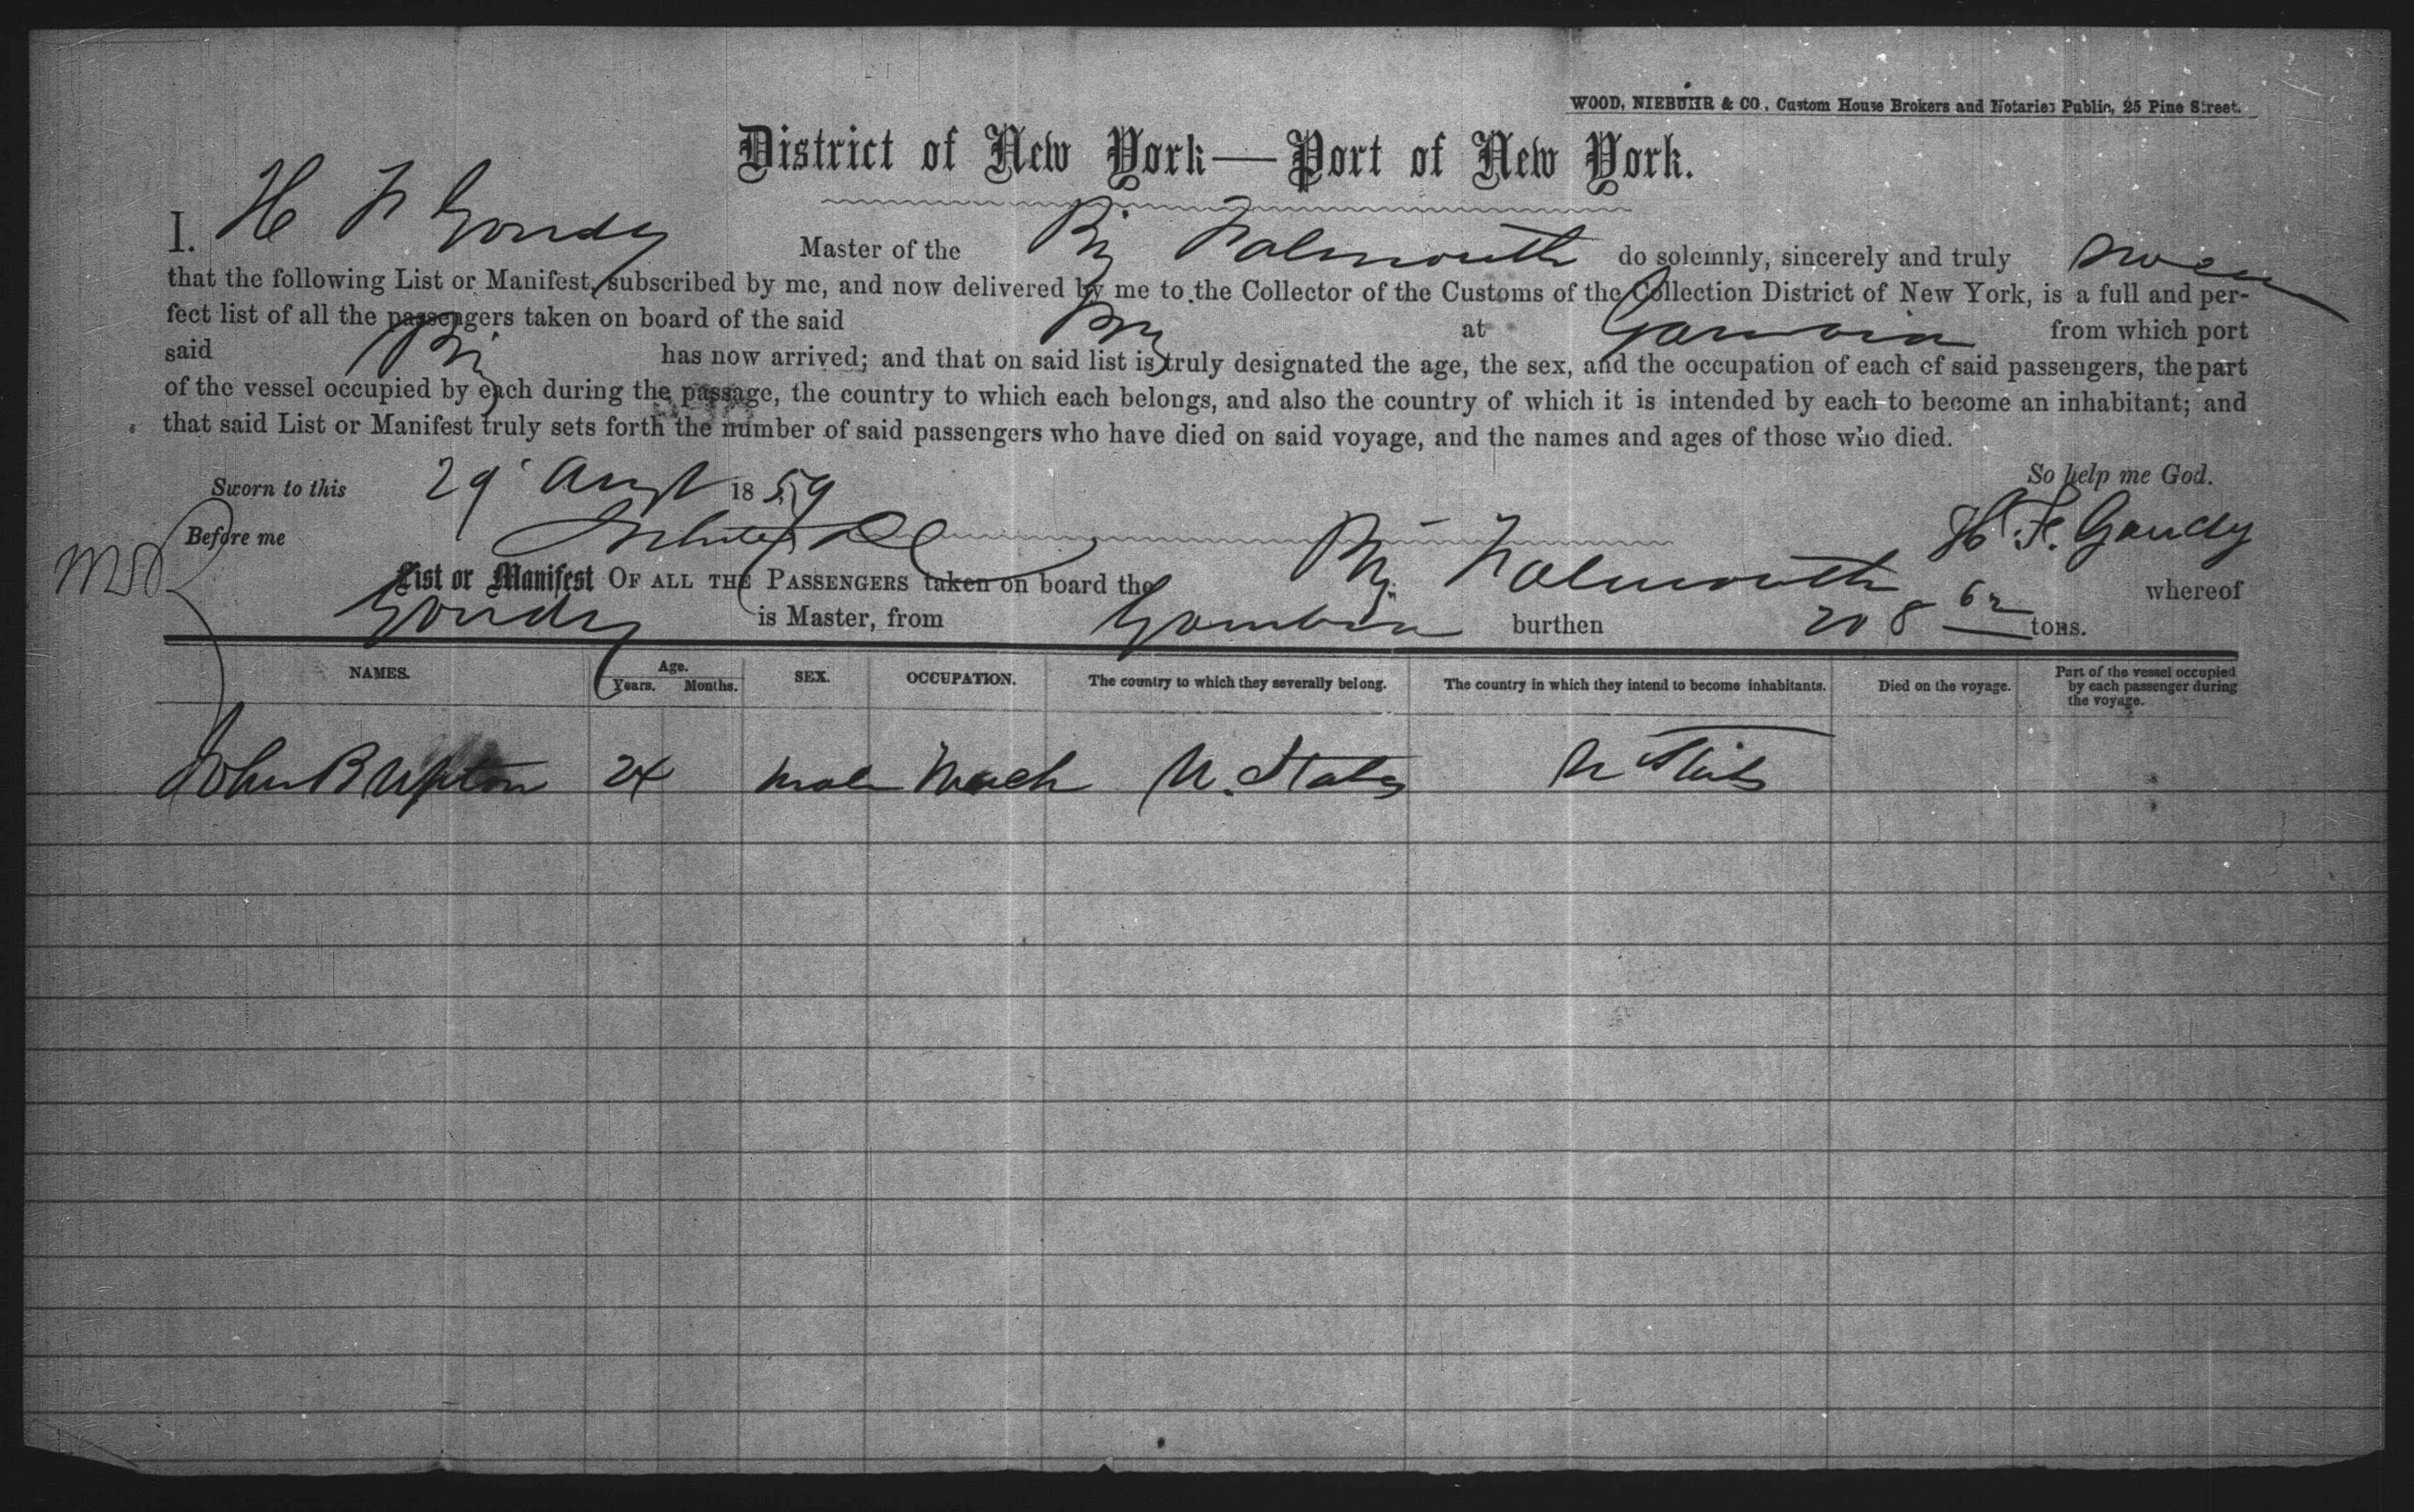 WOOD, NIEBUHR & CO., Custom House Brokers and Notaries Public, 25 Pine Street.
District of New York—Port of New York.
I. H F Goudy Master of the Brig Falmouth do solemnly, sincerely and truly swear
that the following List or Manifest, subscribed by me, and now delivered by me to the Collector of the Customs of the Collection District of New York, is a full and per-
fect list of all the passengers taken on board of the said Brig at Gambia from which port
said Brig has now arrived; and that on said list is truly designated the age, the sex, and the occupation of each of said passengers, the part
of the vessel occupied by each during the passage, the country to which each belongs, and also the country of which it is intended by each to become an inhabitant; and
that said List or Manifest truly sets forth the number of said passengers who have died on said voyage, and the names and ages of those who died.
So help me God.
Sworn to this 29 Augt 1859
Before me H. F. Goudy
List or Manifest OF ALL THE PASSENGERS taken on board the Brig Falmouth whereof
Goudy is Master, from Gambia burthen 208 62 tons.
NAMES. Age. Years. Months. SEX. OCCUPATION. The country to which they severally belong. The country in which they intend to become inhabitants. Died on the voyage. Part of the vessel occupied by each passenger during the voyage.
John B Upton 24 male Mech U. States U States